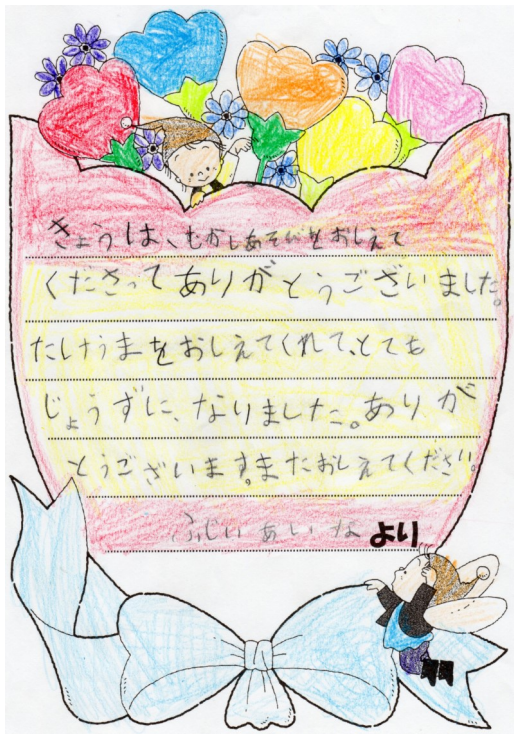 きょうは、むかしあそびをおしえて
くださってありがとうございました。
たけうまをおしえてくれて、とても
じょうずに、なりました。ありが
とうございます。またおしえてください。
ふじいあいなより